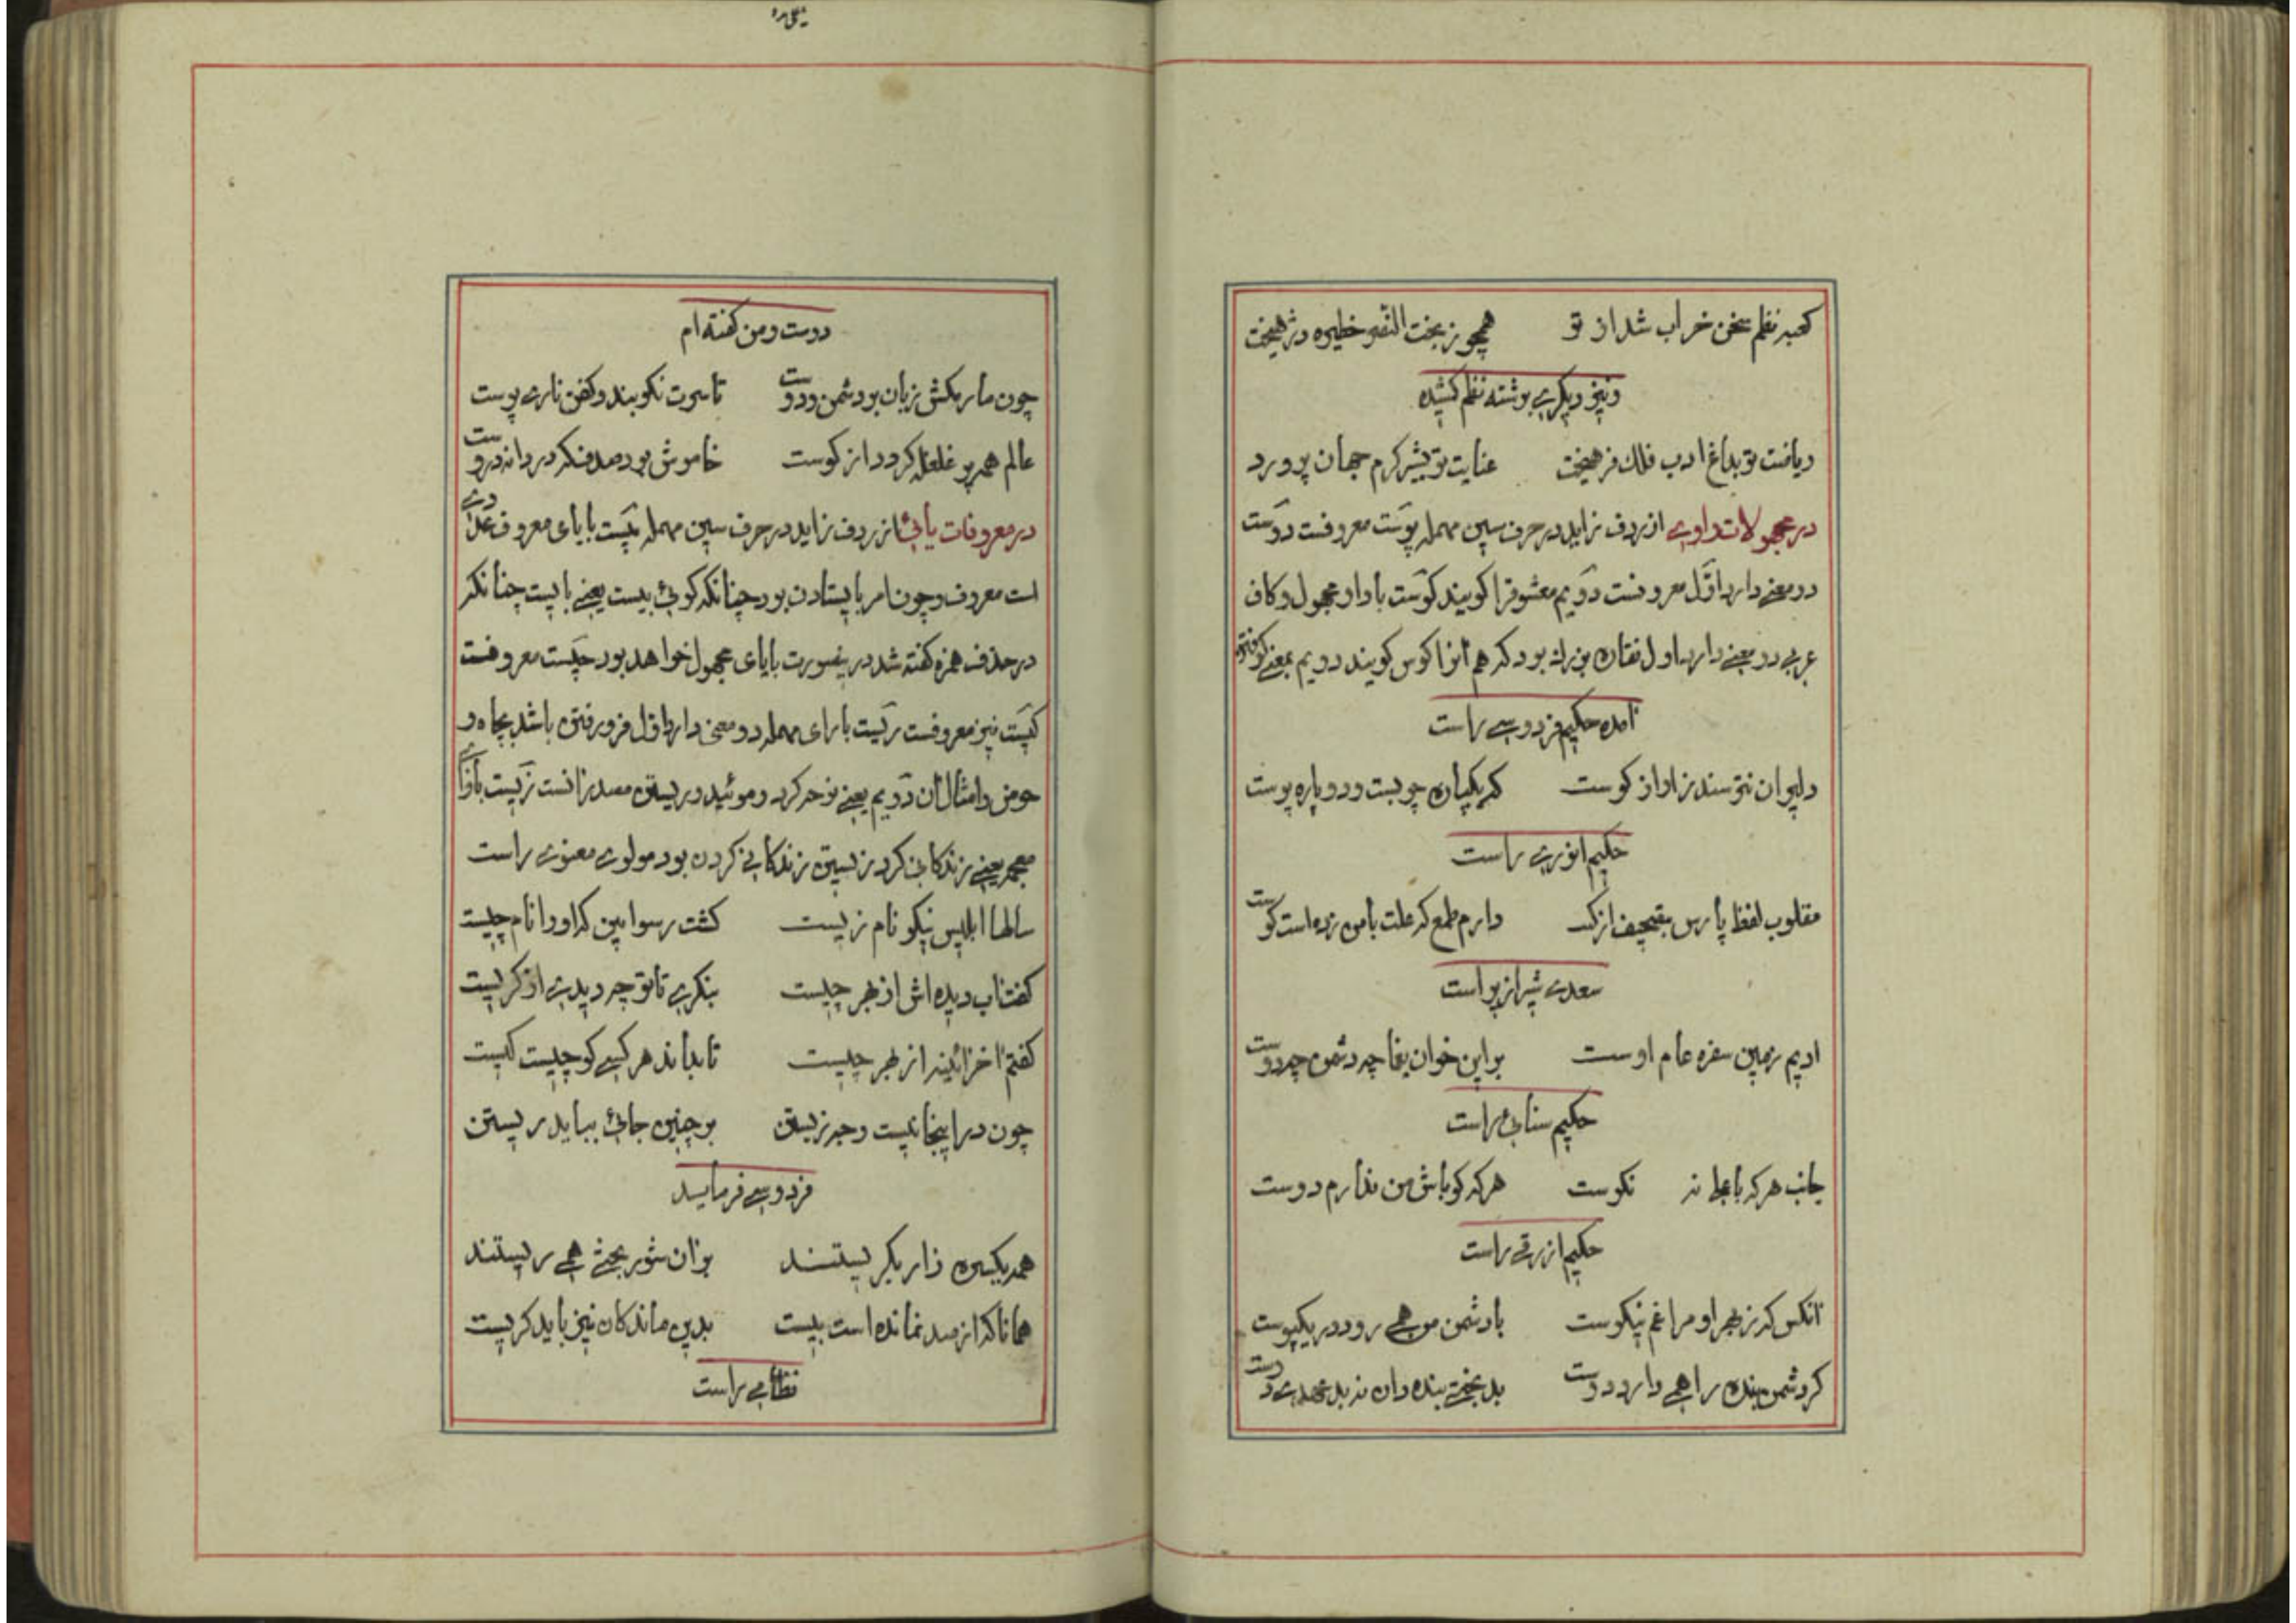 کعبه نظم سخن خراب شد از تو همچو ز بخت النصر خطیره دژهیخت
و نیز دیگری برشته نظم کشیده
ریاضت تو بباغ ادب فلک فرهیخت عنایت تو بشیر کرم جهان پرورد
در مجهولات واوی از ردف زاید در حرف سین مهمله پوست معروفست دوست
دو معنی دارد اوّل معروفست دویم معشوقرا کویند کوست با واو مجهول و کاف
عربی دو معنی دارد اول نقاره بزرک بود که هم آنرا کوس کویند دویم بمعنی کوفته
آمده حکیم فردوسی راست
دلیران نترسند ز اواز کوست که یکپاره چوبست و دو پاره پوست
حکیم انوری راست
مقلوب لفظ پارس بتصحیف از کفت دارم طمع که علت با من زده است کوست
سعدی شیرازیراست
ادیم زمین سفره عام اوست بر این خوان یغما چه دشمن چه دوست
حکیم سنائی راست
جانب هر که با علی نه نکوست هر که کو باش من ندارم دوست
حکیم ازرقی راست
آنکس که ز بهر او مرا غم نیکوست با دشمن من همی رود در یکپوست
کر دشمن بنده را همی دارد دوست بدبختی بنده دان نه بدعهدی دوست
دوست و من کفته ام
چون مار بکش زبان بود دشمن و دوست تا سرت نکوبند و کفن ناری پوست
عالم همه پر غلغله کردد از کوست خاموش بود صدف که دردانه دروست
در معروفات یائی از ردف زاید در حرف سین مهمله بیست با یای معروف عددی
است معروف و چون امر بایستادن بود چنانکه کوئی بیست یعنی بایست چنانکه
در حذف همزه کفته شد درینصورت با یای مجهول خواهد بود چیست معروفست
کیست نیز معروفست ریست با رای مهمله دو معنی دارد اوّل فرو رفتن باشد بچاه و
حوض و امثال آن دویم یعنی نوحه کرد و موئید و ریستن مصدر آنست زیست با زای
معجمه یعنی زندکانی کرد زیستن زندکانی کردن بود مولوی معنوی راست
سالها ابلیس نیکو نام زیست کشت رسوا بین که او را نام چیست
کفت آب دیده اش از بهر چیست بنکری تا تو چه دیدی او کریست
کفتم آخر آئینه از بهر چیست تا بداند هر کسی کو چیست کیست
چون در اینجا نیست وجه زیستن بر چنین جائی بباید ریستن
فردوسی فرماید
همه یکسره زار بکریستند بر آن شور بختی همی ریستند
همانا که از صد نمانده است بیست بدین ماندکان نیز باید کریست
نظامی راست